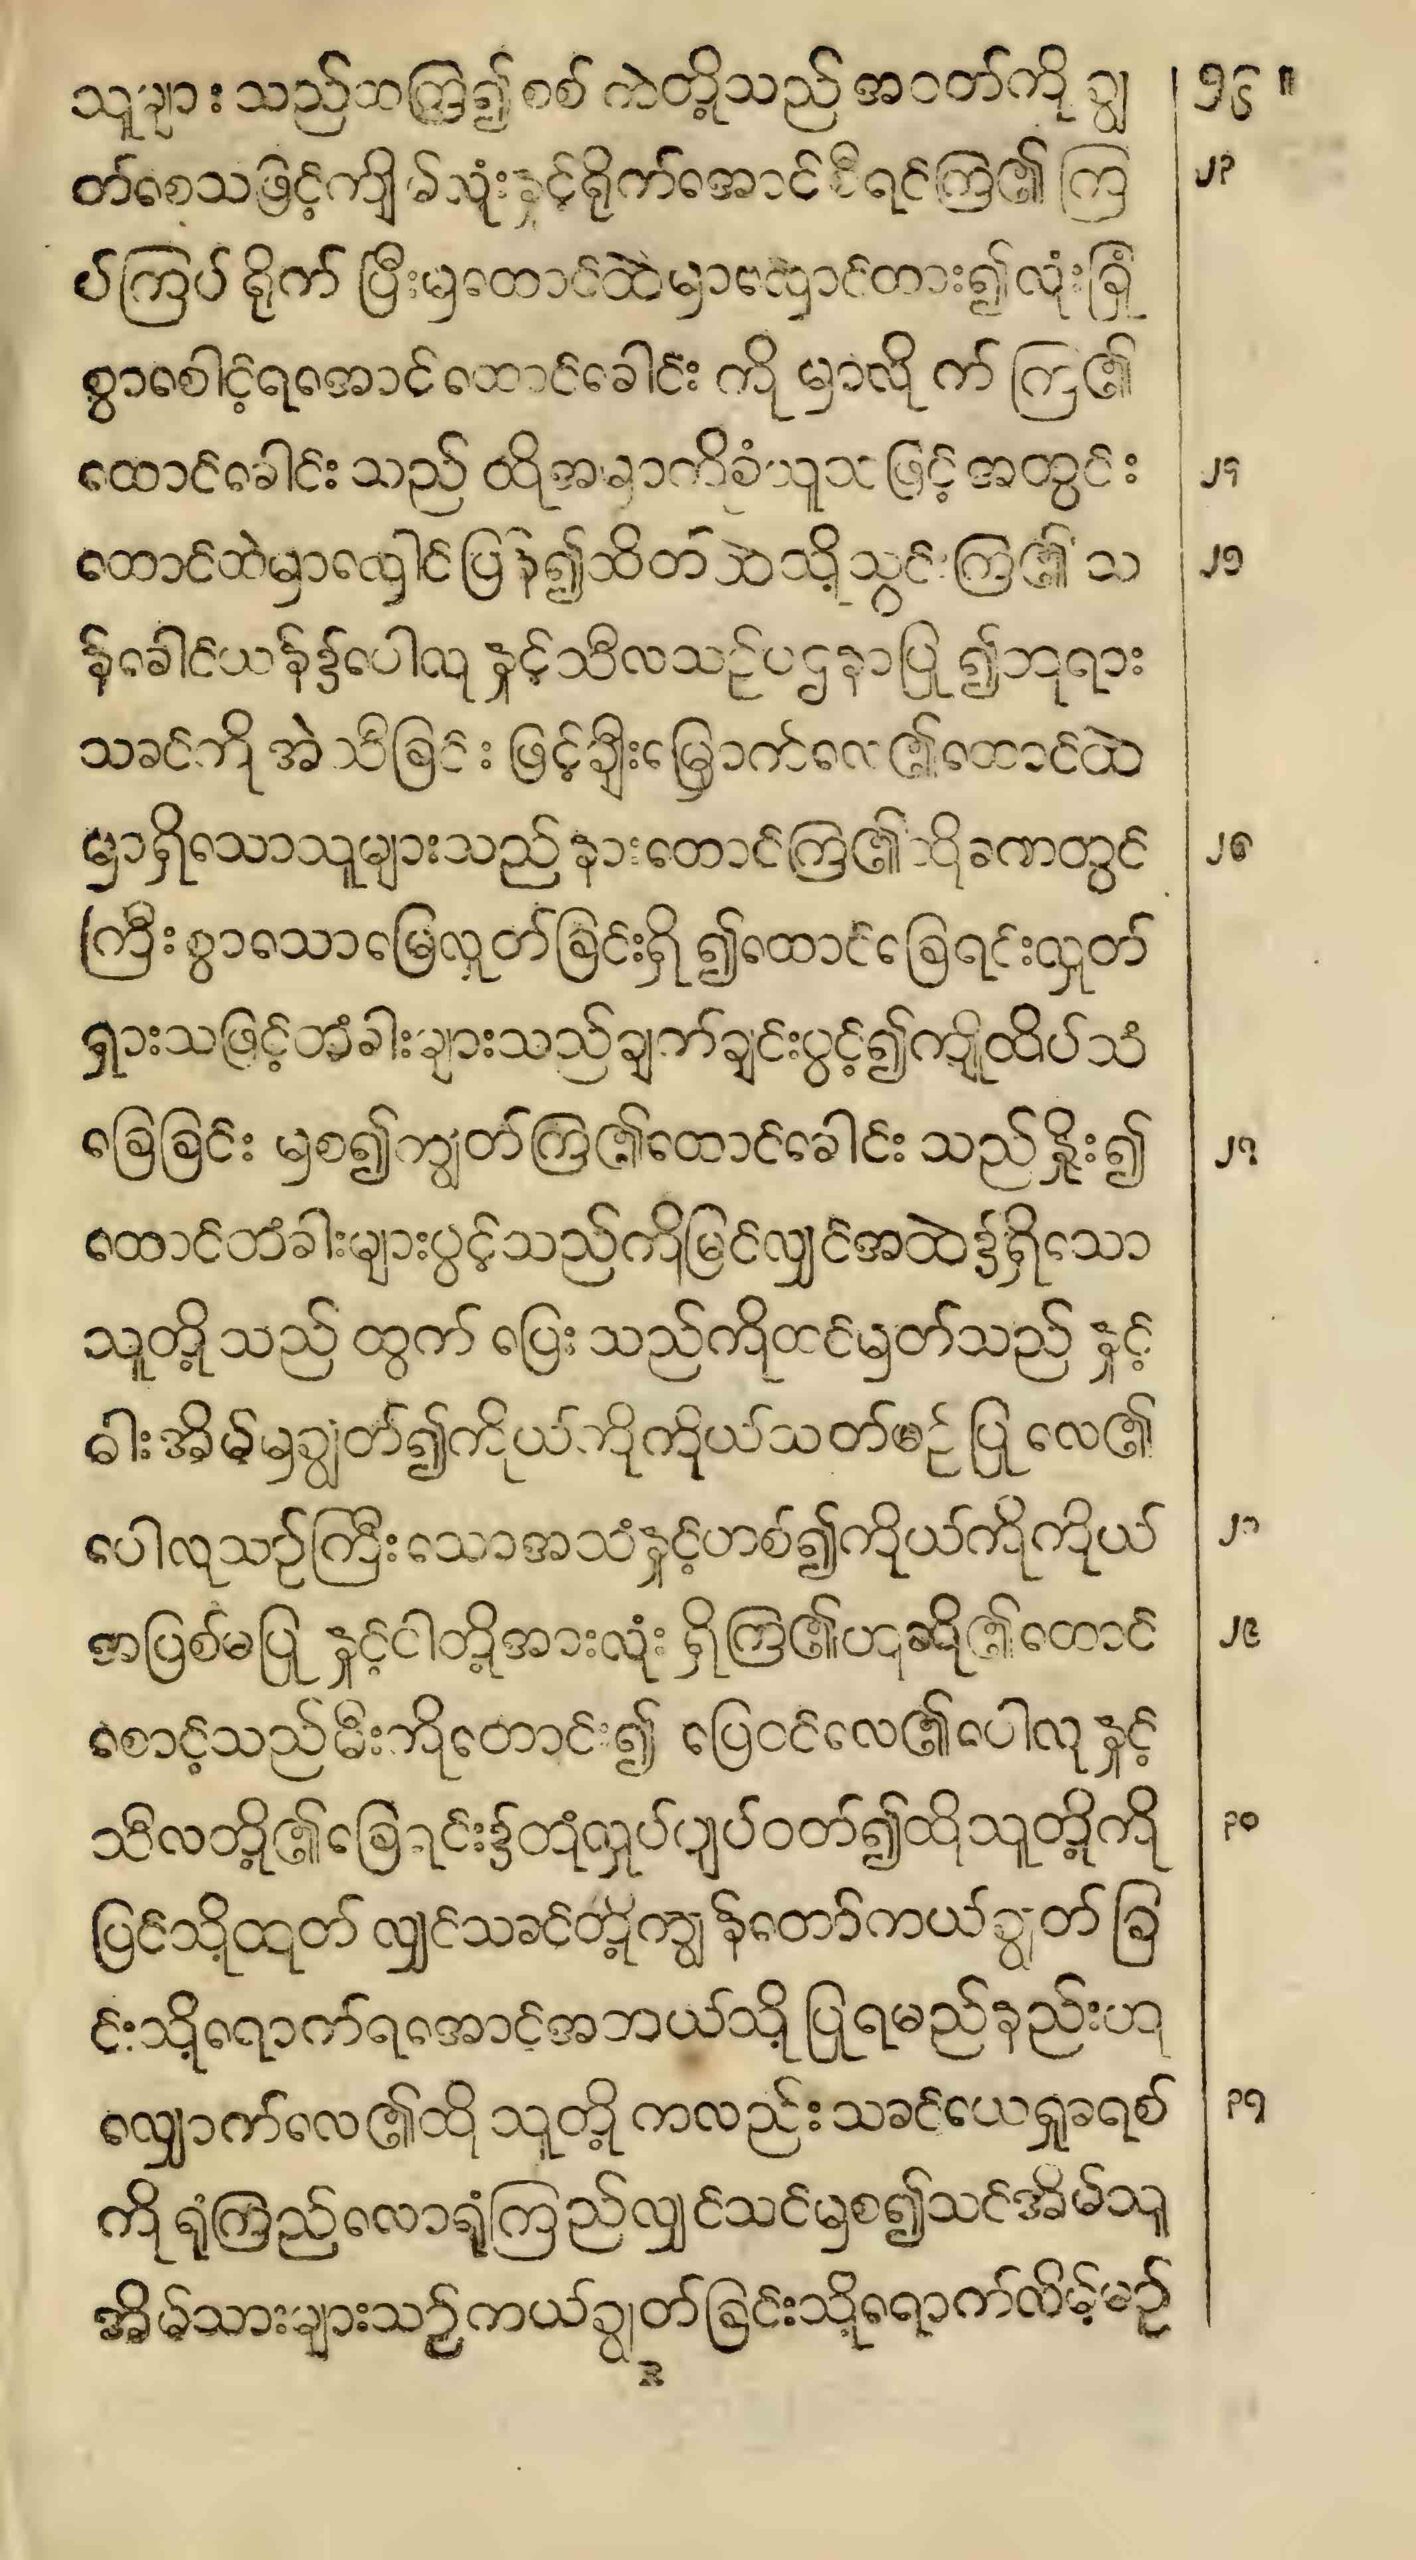 သူများ သည်ထကြ၍ စစ် ကဲတို့သည် အဝတ်ကို ချွ ၊ ၁၆ ။
တ်စေသဖြင့်ကျိမ်လုံးနှင့်ရိုက်အောင်စီရင်ကြ၏ ကြ ၂၃
ပ်ကြပ် ရိုက် ပြီးမှထောင်ထဲမှာလှောင်ထား၍လုံးခြုံ
စွာစောင့်ရအောင်ထောင်ခေါင်း ကို မှာလို က် ကြ၏
ထောင်ခေါင်း သည် ထိုအမှာကိုခံယူသ ဖြင့် အတွင်း ၂၄
ထောင်ထဲမှာလှောင်ပြန်၍ထိတ်ထဲသို့သွင်းကြ၏ သ ၂၅
န်ခေါင်ယန်၌ပေါလု နှင့်သီလသဉ်ပဌနာပြု ၍ဘုရား
သခင်ကို အဲ သီခြင်း ဖြင့်ချီးမြှောက်လေ၏ထောင်ထဲ
မှာရှိသောသူများသည် နားထောင်ကြ၏ထိုခဏတွင် ၂၆
ကြီးစွာသောမြေလှုတ်ခြင်းရှိ ၍ထောင်ခြေရင်းလှုတ်
ရှားသဖြင့်တံခါးများသည်ချက်ချင်းပွင့်၍ကျိုထိပ်သံ
ခြေခြင်း မှစ၍ကျွတ်ကြ၏ထောင်ခေါင်း သည် နှိုး၍ ၂၇
ထောင်တံခါးများပွင့်သည်ကိုမြင်လျှင်အထဲ၌ရှိသော
သူတို့ သည် ထွက် ပြေး သည်ကိုထင်မှတ်သည် နှင့်
ဓါးအိမ်မှချွတ်၍ကိုယ်ကိုကိုယ်သတ်မဉ် ပြု လေ၏
ပေါလုသဉ်ကြီးသောအသံနှင့်ဟစ်၍ကိုယ်ကိုကိုယ် ၂၈
အပြစ်မပြု နှင့်ငါတို့အားလုံး ရှိကြ၏ဟုဆို၏ထောင် ၂၉
စောင့်သည်မီးကိုတောင်း၍ ပြေဝင်လေ၏ပေါလု နှင့်
သီလတို့၏ခြေရင်း၌တုံလှုပ်ပျပ်ဝတ်၍ထိုသူတို့ကို ၃၀
ပြင်သို့ထုတ် လျှင်သခင်တို့ကျွန်တော်ကယ်ချွတ် ခြ
င်းသို့ရောက်ရအောင်အဘယ်သို့ ပြုရမည်နည်းဟု
လျှောက်လေ၏ထို သူတို့ ကလည်းသခင်ယေရှုခရစ် ၃၁
ကို ရုံကြည်လောရုံကြည်လျှင်သင်မှစ၍သင်အိမ်သူ
အိမ်သားများသဉ်ကယ်ချွတ်ခြင်းသို့ရောက်လိမ့်မဉ်